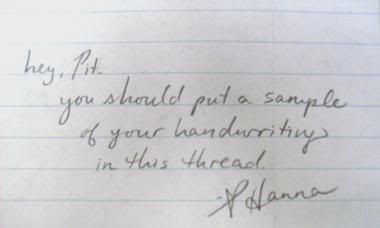 hey, Pit.
you should put a sample
of your handwriting
in this thread.
-PHanna